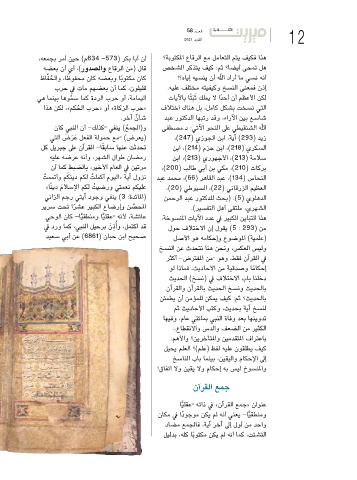 العدد 58
12
هذا فكيف يتم التعامل مع الرقاع المكتوبة؟
هل تُمحى أيضًا؟ ثم: كيف يتذكر الشخص
أنه نسي ما أراد الله أن ينسيه إياه؟!
إذن فمعنى النسخ وكيفيته مختلف عليه
لكن الأعظم أن أحدًا لا يملك ثَبْتًا بالآيات
التي نسخت بشكل كامل، بل هناك اختلاف
شاسع بين الآراء، وقد رتبها الدكتور عبد
الله الشنقيطي على النحو الآتي: د.مصطفى
زيد (293) آية، ابن الجوزي (247)،
السكري (218)، ابن حزم (214)، ابن
سلامة (213)، الأجهوري (213)، ابن
بركات (210)، مكي بن أبي طالب (200)،
النحاس (134)، عبد القاهر (66)، محمد عبد
العظيم الزرقاني (22)، السيوطي (20)،
الدهلوي (5). (بحث للدكتور عبد الرحمن
الشهري، ملتقى أهل التفسير).
هذا التباين الكبير في عدد الآيات المنسوخة،
من (293 : 5) يقول إن الاختلاف حول
(علمية) الموضوع وإحكامه هو الأصل
وليس العكس، ونحن هنا نتحدث عن النسخ
في القرآن فقط، وهو -من المفترض- أكثر
إحكامًا وصدقية من الأحاديث، فماذا لو
دخلنا باب الاختلاف في (نسخ) الحديث
بالحديث ونسخ الحديث بالقرآن والقرآن
بالحديث؟ ثم: كيف يمكن للمؤمن أن يطمئن
لنسخ آية بحديث، وكتب الأحاديث تم
تدوينها بعد وفاة النبي بمائتي عام، وفيها
الكثير من الضعف والدس والانقطاع..
باعتراف المتقدمين والمتأخرين؟ والأهم:
كيف يطلقون عليه لفظ (علم)؟ العلم يحيل
إلى الإحكام واليقين، بينما باب الناسخ
والمنسوخ ليس به إحكام ولا يقين ولا اتفاق!
جمع القرآن
عنوان «جمع القرآن» في ذاته -عقليًّا
ومنطقيًّا- يعني أنه لم يكن موجودًا في مكان
واحد من أول إلى آخر آية، فالجمع مضاد
التشتت، كما أنه لم يكن مكتوبًا كله، بدليل
أن أبا بكر (573- 634م) حين أمر بجمعه،
قال (من الرقاع والصدور)، أي أن بعضه
كان مكتوبًا وبعضه كان محفوظًا، والحُفَّاظ
قليلون، كما أن بعضهم مات في حرب
اليمامة، أو حرب الردة كما سمُّوها بينما هي
«حرب الزكاة»، أو «حرب الحُكم»، لكن هذا
شأنٌ آخر.
و(الجمع) ينفي -كذلك- أن النبي كان
(يعرض) -مع حمولة الفعل عَرَضَ التي
تحدثت عنها سابقًا- القرآن على جبريل كل
رمضان طوال الشهر، وأنه عرضه عليه
مرتين في العام الأخير، بالضبط كما أن
نزول آية «اليوم أكملتُ لكم دينكم وأتممتُ
عليكم نعمتي ورضيتُ لكم الإسلام دينًا»
(المائدة: 3) ينفي وجود آيتي رجم الزاني
المُحصَّن وإرضاع الكبير عشرًا تحت سرير
عائشة، لأنه -عقليًّا ومنطقيًّا- كان الوحي
قد اكتمل، وأُذِنَ برحيل النبي، كما ورد في
صحيح ابن حبان (6861) عن أبي سعيد